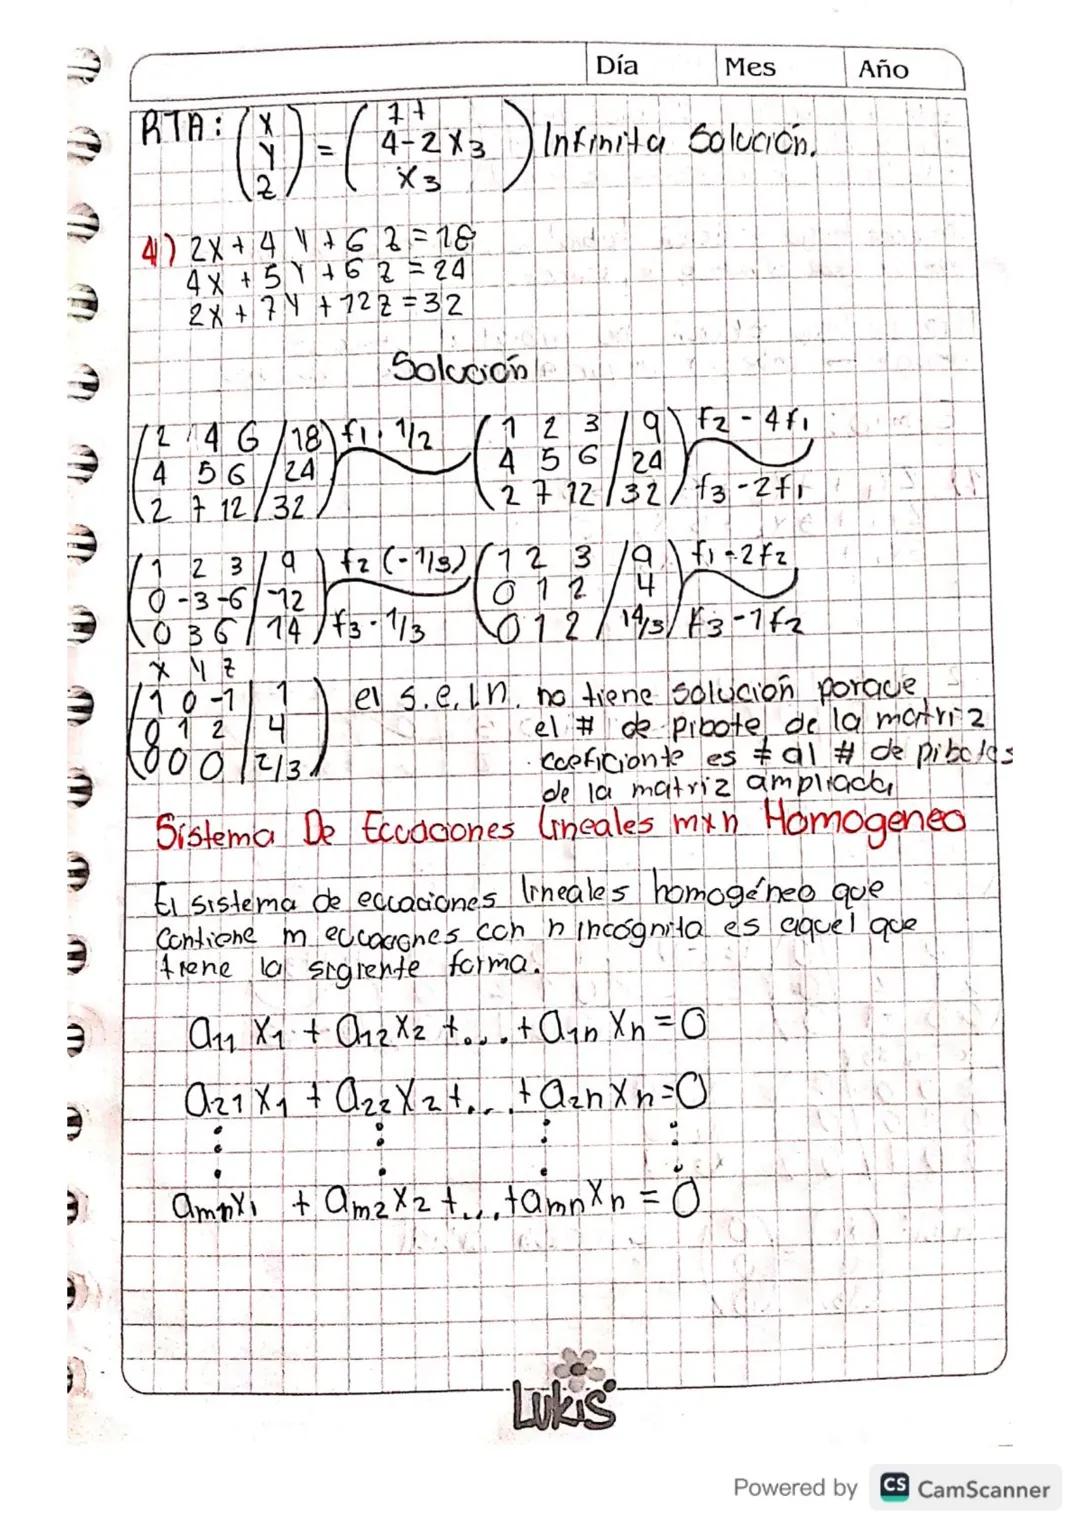 Día Mes Año
RTA: (X Y Z) = (1+ 4-2X3 X3) Infinita Solución.
4) 2X + 4Y + 6Z = 18
4X + 5Y + 6Z = 24
2X + 7Y + 12Z = 32
Solución
(2 4 6 / 18) f1 · 1/2 (1 2 3 / 9) f2 - 4f1
(4 5 6 / 24) (4 5 6 / 24)
(2 7 12 / 32) (2 7 12 / 32) f3 - 2f1
(1 2 3 / 9) f2 (-1/3) (1 2 3 / 9) f1 - 2f2
(0 -3 -6 / -12) (0 1 2 / 4)
(0 3 6 / 14) f3 · 1/3 (0 1 2 / 14/3) f3 - 1f2
X Y Z
(1 0 -1 | 1) el s.e.l.n. no tiene solución porque
(0 1 2 | 4) el # de pibote de la matriz
(0 0 0 | 2/3) coeficionte es ≠ al # de pibotes
de la matriz ampliada
Sistema De Ecuaciones Lineales mxn Homogeneo
El sistema de ecuaciones lineales homogéneo que
Contiene m ecuaciones con n incógnita es aquel que
tiene la sigiente forma.
a11 X1 + a12 X2 + ... + a1n Xn = 0
a21 X1 + a22 X2 + ... + a2n Xn = 0
⋮ ⋮ ⋮ ⋮
amnX1 + am2 X2 + ... + amn Xn = 0
Lukis
Powered by CS CamScanner